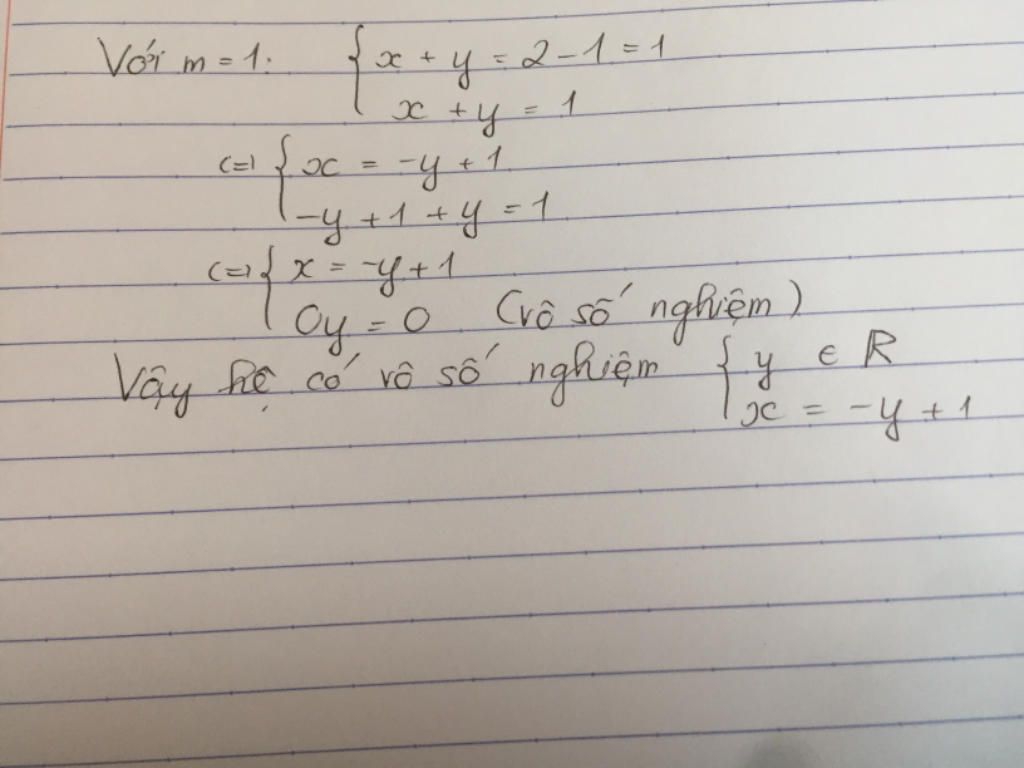 Với m = 1. { x + y = 2 - 1 = 1
x + y = 1
(=) { x = -y + 1
-y + 1 + y = 1
(=) { x = -y + 1
0y = 0 (vô số nghiệm)
Vậy hệ có vô số nghiệm { y ∈ R
x = -y + 1